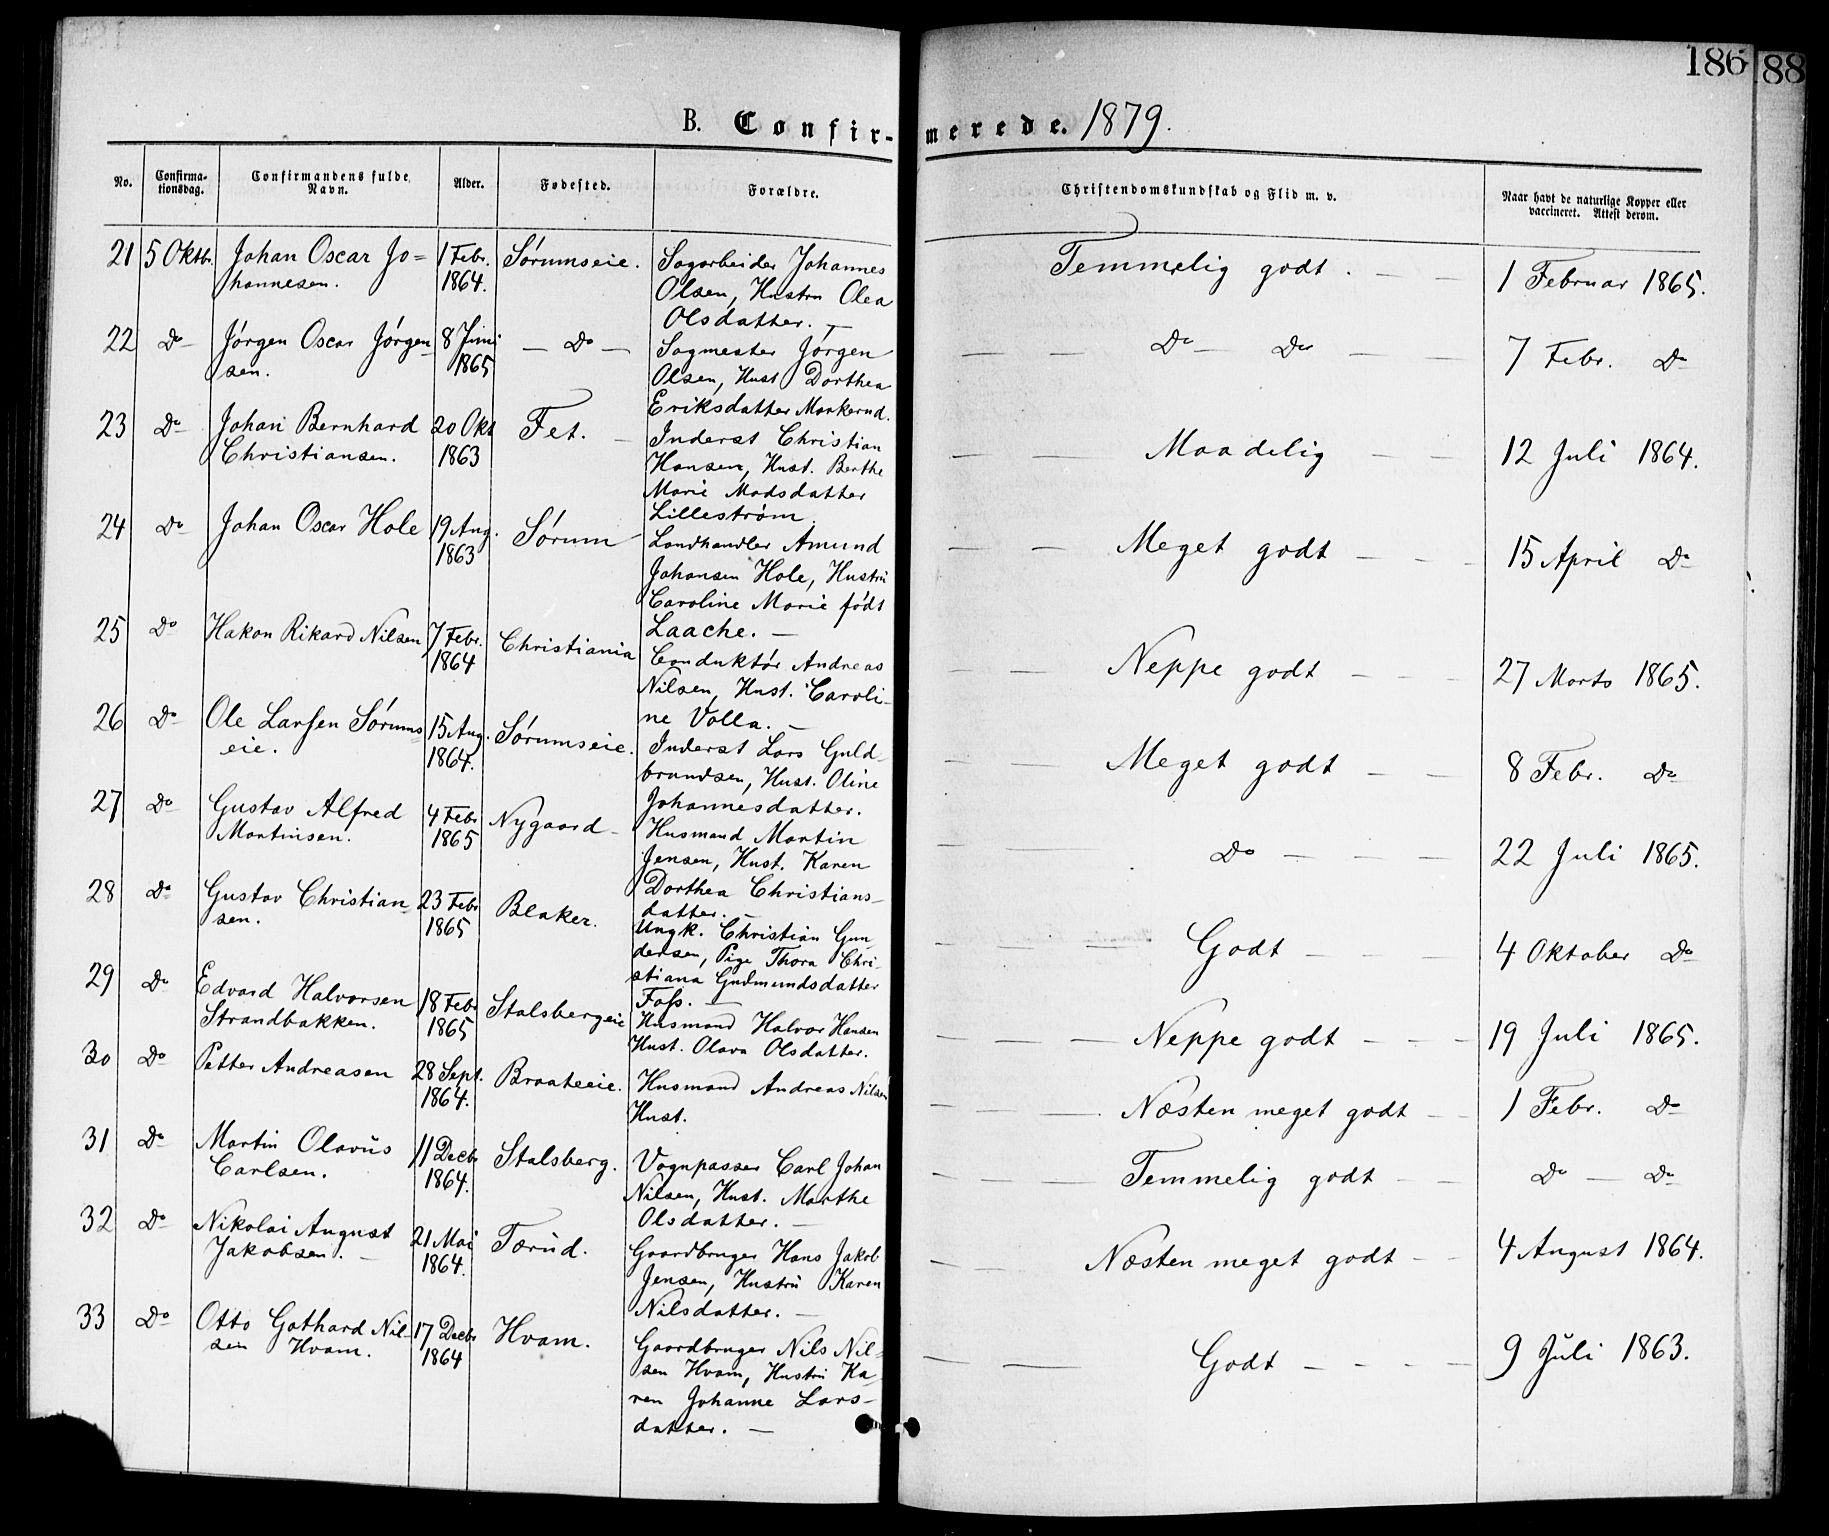 186 88
B. Confirmerede. 1879.
No. Confirmationsdag. Confirmandens fulde Navn. Alder. Fødested. Forældre. Christendomskundskab og Flid m. v. Naar havt de naturlige Kopper eller vaccineret. Attest derom.
21 5 Oktb. Johan Oscar Jo= 1 Febr. Sørumseie. Sagarbeider Johannes Temmelig godt. — — 1 Februar 1865.
hannesen. 1864. Olsen, Hustru Olea
Olsdatter. —
22 Do Jørgen Oscar Jørgen= 8 Juni — Do — Sagmester Jørgen — — Do — Do — — 7 Febr. Do
sen. 1865 Olsen, Hust Dorthea
Eriksdatter Markerud.
23 Do Johan Bernhard 20 Okt Fet. — Inderst Christian — — Maadelig — — 12 Juli 1864.
Christiansen. 1863 Hansen, Hust. Berthe
Marie Madsdatter
Lillestrøm.
24 Do Johan Oscar Hole 19 Aug. Sørum Landhandler Amund — — Meget godt — — 15 April Do
1863 Johansen Hole, Hustru
Caroline Marie født
Laache. —
25 Do Hakon Rikard Nilsen 7 Febr. Christiania Conduktør Andreas — — Neppe godt — — — 27 Marts 1865.
1864 Nilsen, Hust. Caroli-
ne Volla. —
26 Do Ole Larsen Sørums= 15 Aug. Sørumseie. Inderst Lars Guld= — — Meget godt — — 8 Febr. Do
eie. 1864. brandsen, Hust. Oline
Johannesdatter.
27 Do Gustav Alfred 4 Febr Nygaard — Husmand Martin — — Do — — — 22 Juli 1865.
Martinsen. 1865 Jensen, Hust. Karen
Dorthea Christians-
datter. —
28 Do Gustav Christian= 23 Febr Blaker. Ungk. Christian Gun= — — — Godt — — — 4 Oktober Do
sen. 1865 dersen, Pige Thora Chri-
stiana Gudmundsdatter
Foss. —
29 Do Edvard Halvorsen 18 Febr Stalsbergeie Husmand Halvor Hansen — — — Neppe godt — — — 19 Juli 1865.
Strandbakken. 1865 Hust. Olava Olsdatter.
30 Do Petter Andreasen 28 Sept. Braateeie. Husmand Andreas Nilsen — — — Næsten meget godt — — 1 Febr. Do
1864. Hust.
31 Do Martin Olavus 11 Decbr Stalsberg. Vognpasser Carl Johan — — — Temmelig godt — — Do — Do
Carlsen. 1864. Nilsen, Hust. Marthe
Olsdatter. —
32 Do Nikolai August 21 Mai Tærud. Gaardbruger Hans Jakob — — Næsten meget godt — — 4 August 1864.
Jakobsen. — 1864. Jensen, Hustru Karen
Nilsdatter. —
33 Do Otto Gothard Nil- 17 Decbr Hvam. Gaardbruger Nils Nil= — — Godt — — — — 9 Juli 1863.
sen Hvam. 1864 sen Hvam, Hustru Ka-
ren Johanne Lars-
datter. —